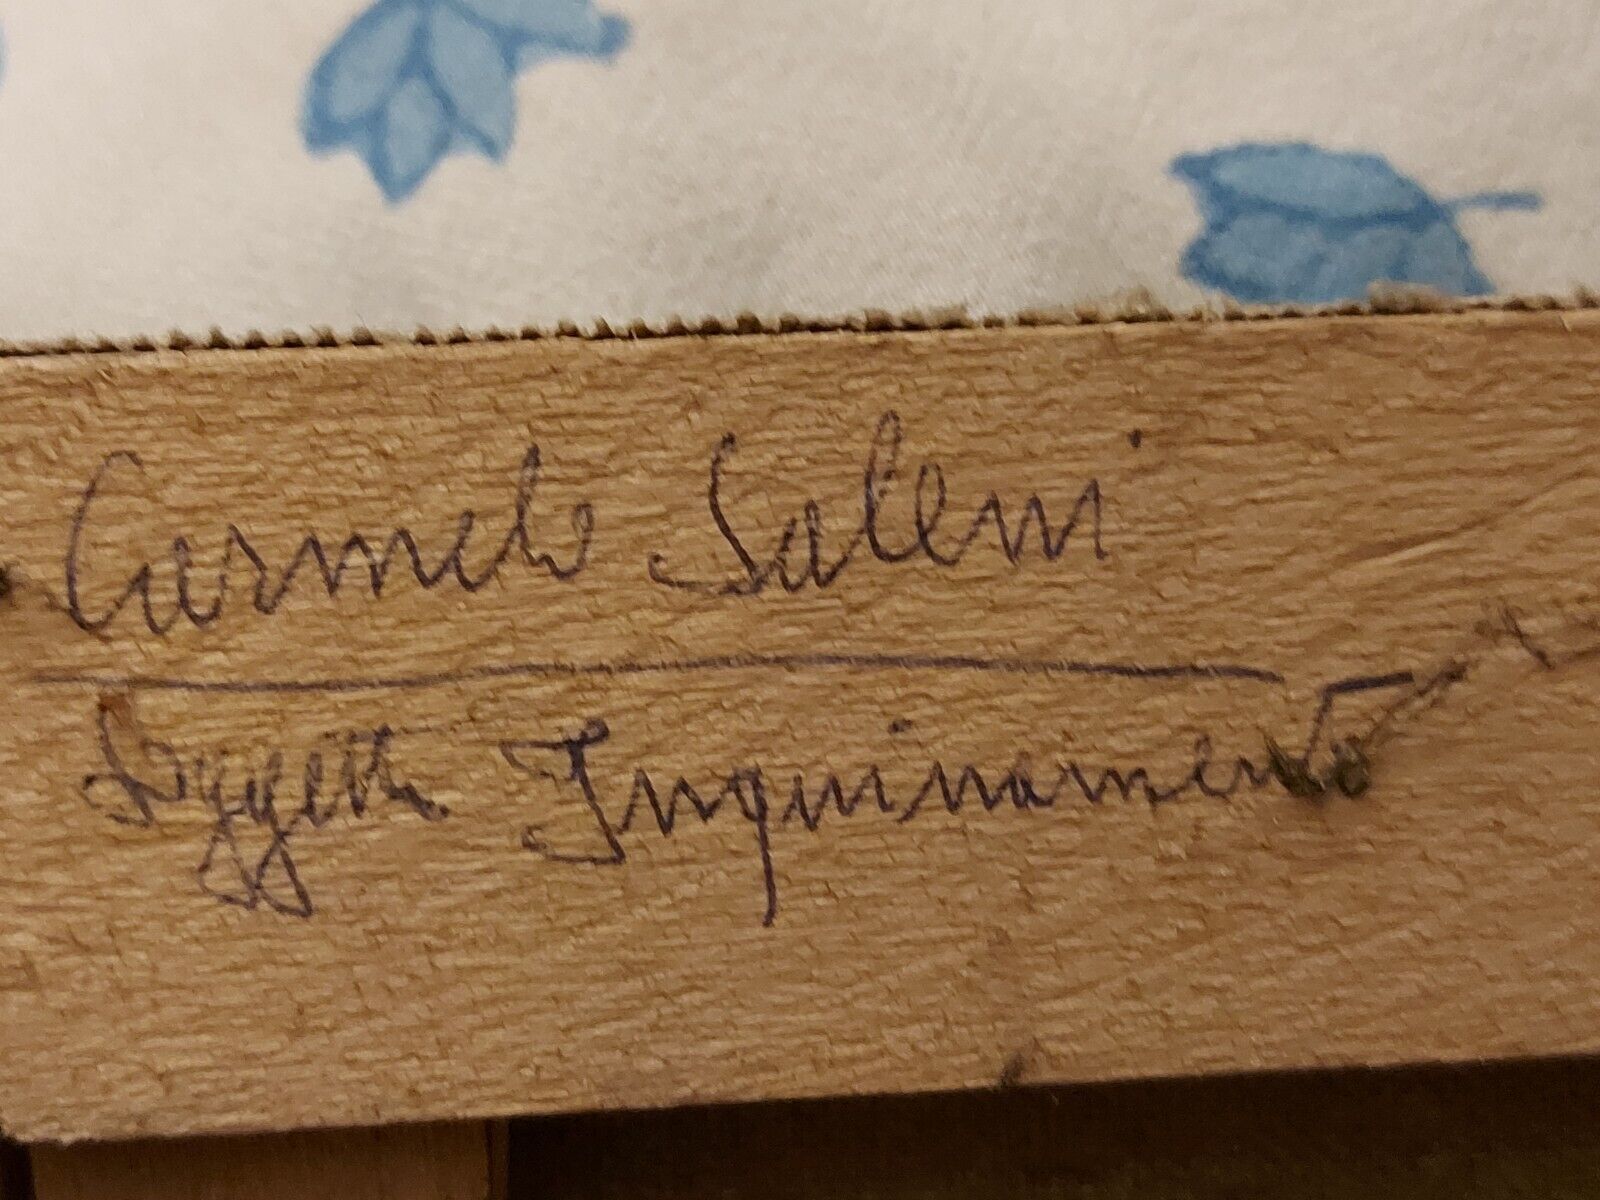 Carmelo Saleni
Soggetto Inquinamento